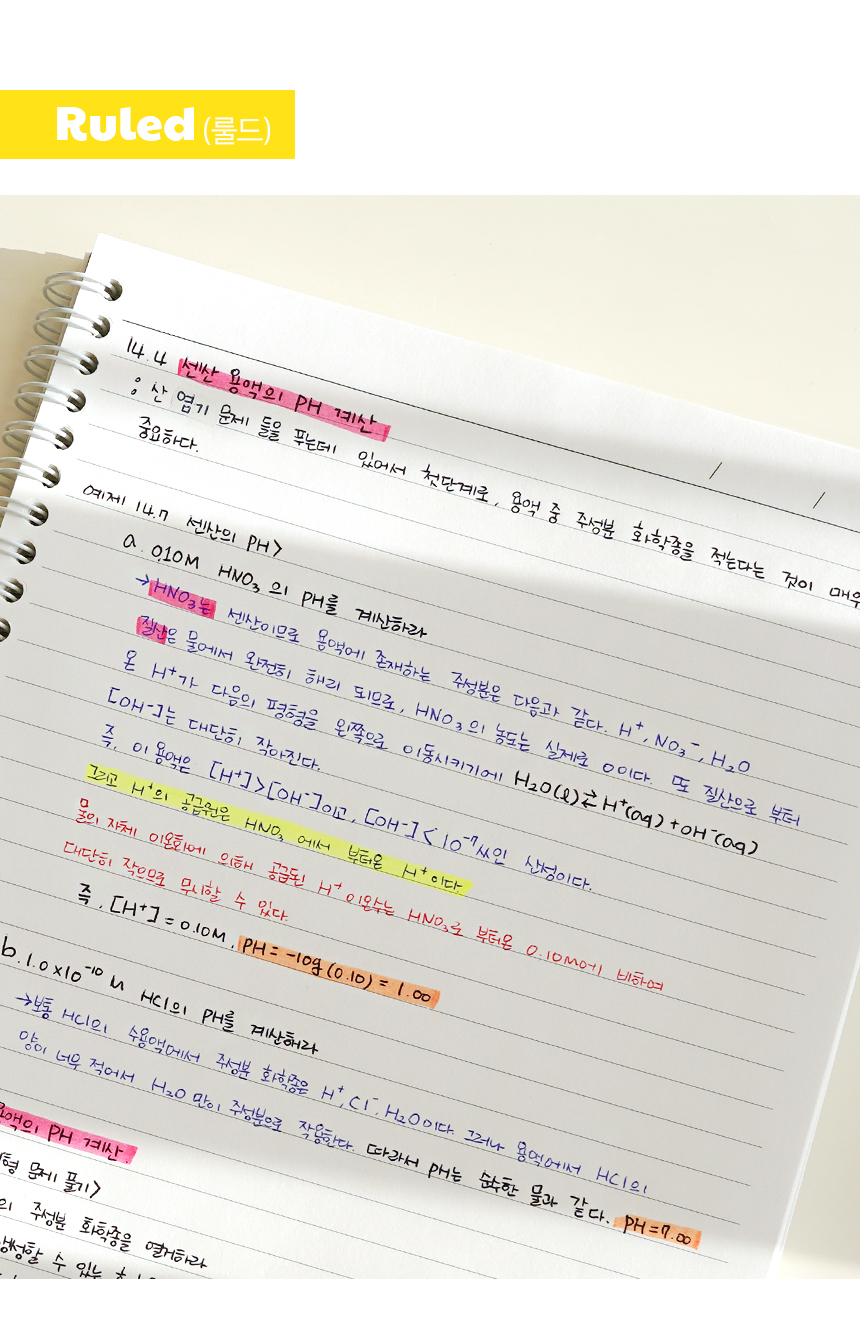 Ruled (룰드)
14.4 센산 용액의 PH 계산
: 산 염기 문제 들을 푸는데 있어서 첫단계로, 용액 중 주성분 화학종을 적는다는 것이 매우
중요하다.
예제 14.7 센산의 PH>
a. 0.10M HNO₃의 PH를 계산하라
→HNO₃는 센산이므로 용액에 존재하는 주성분은 다음과 같다. H⁺, NO₃⁻, H₂O
질산은 물에서 완전히 해리 되므로, HNO₃의 농도는 실제로 0이다. 또 질산으로 부터
온 H⁺가 다음의 평형을 왼쪽으로 이동시키기에 H₂O(l)⇄H⁺(aq)+OH⁻(aq)
[OH⁻]는 대단히 작아진다.
즉, 이 용액은 [H⁺]>[OH⁻]이고, [OH⁻]<10⁻⁷M인 산성이다.
그리고 H⁺의 공급원은 HNO₃ 에서 부터온 H⁺이다.
물의 자체 이온화에 의해 공급된 H⁺이온수는 HNO₃로 부터온 0.10M에 비하여
대단히 작으므로 무시할 수 있다.
즉, [H⁺]=0.10M, PH=-log(0.10)=1.00
b. 1.0×10⁻¹⁰ M HCl의 PH를 계산해라
→보통 HCl의 수용액에서 주성분 화학종은 H⁺, Cl⁻, H₂O이다. 그러나 용액에서 HCl의
양이 너무 적어서 H₂O 만이 주성분으로 작용한다. 따라서 PH는 순수한 물과 같다. PH=7.00
용액의 PH 계산
형 문제 풀기>
의 주성분 화학종을 열거하라
생성할 수 있는